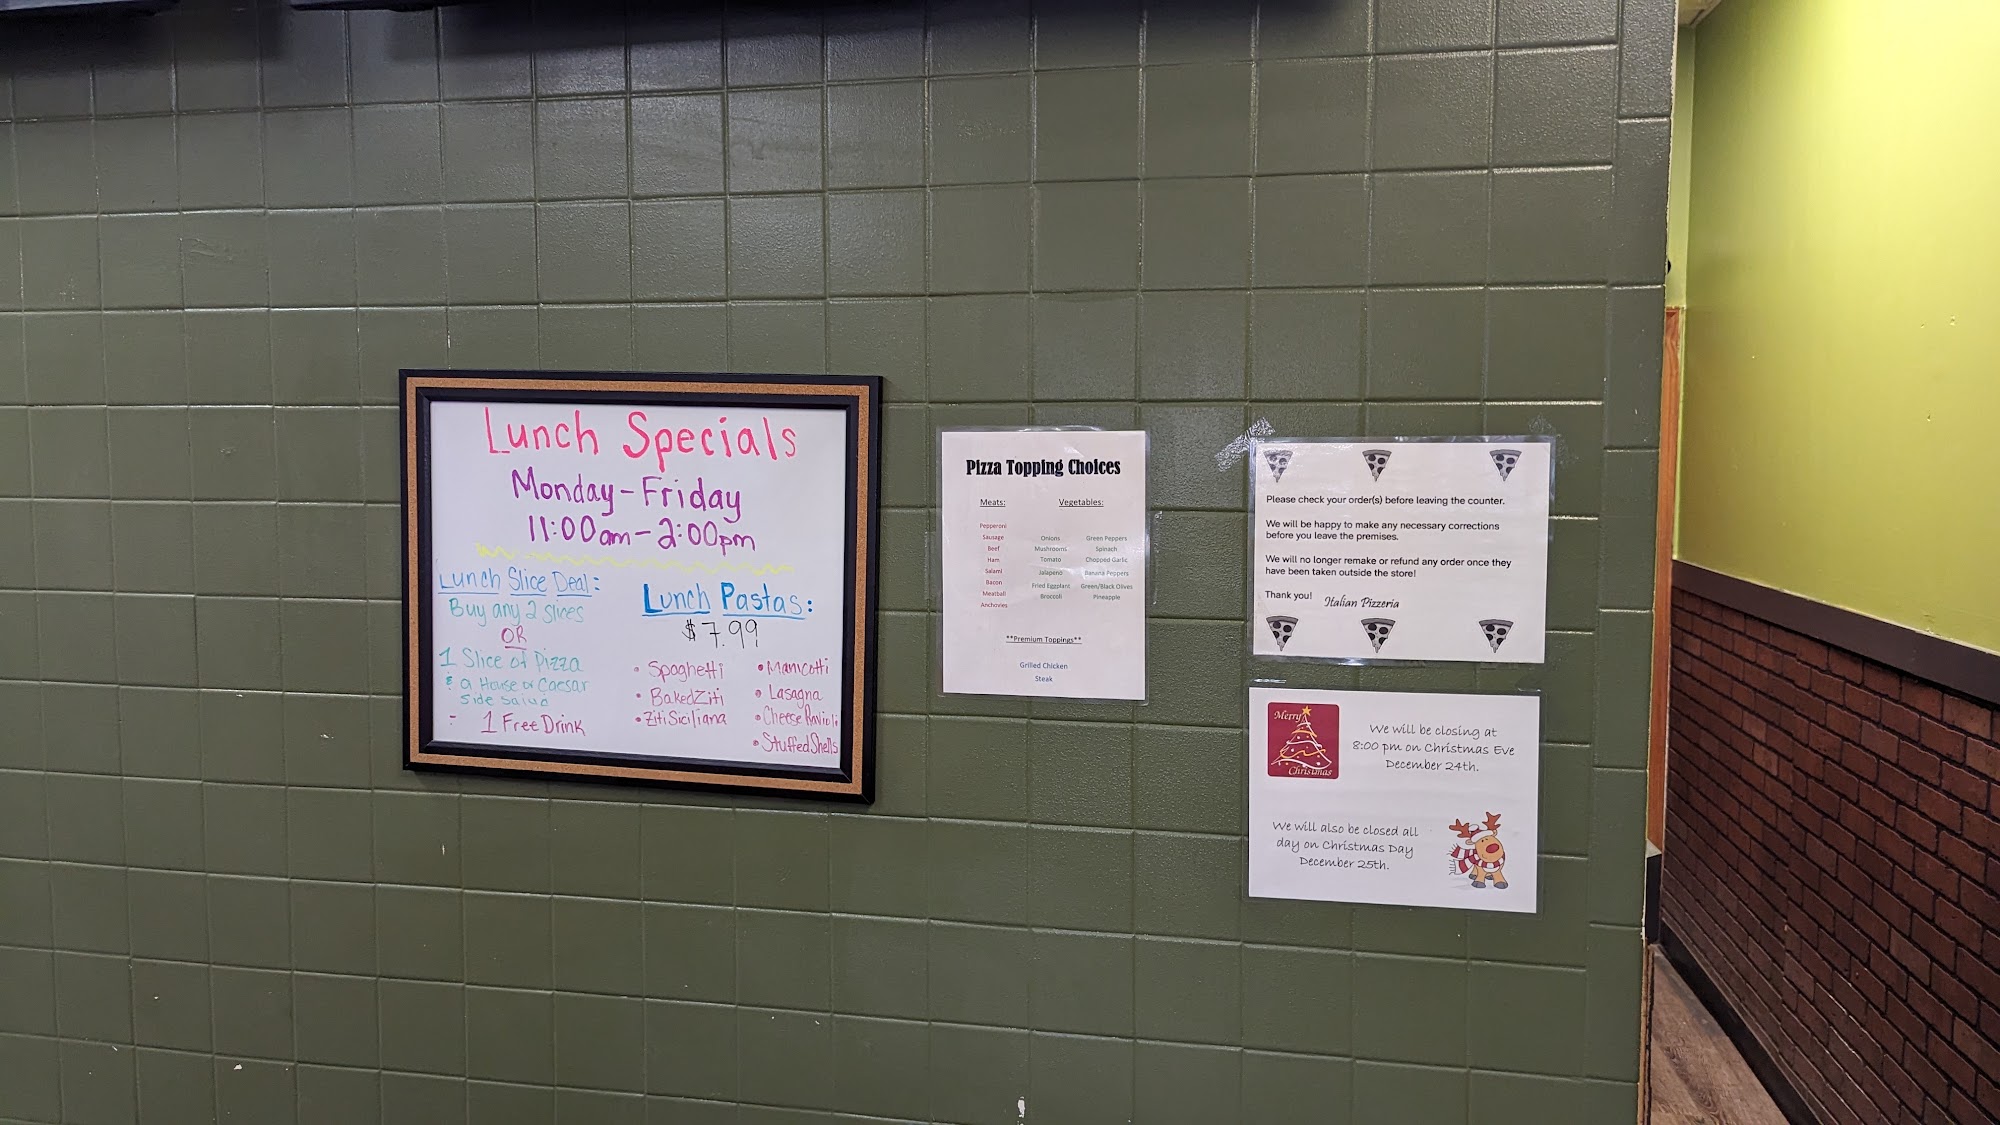 Lunch Specials
Monday-Friday
11:00am-2:00pm
Lunch Slice Deal:
Buy any 2 slices
OR
1 Slice of Pizza
& a House or Caesar
Side Salad
= 1 Free Drink
Lunch Pastas:
$7.99
• Spaghetti
• Baked Ziti
• Ziti Siciliana
• Manicotti
• Lasagna
• Cheese Ravioli
• Stuffed Shells
Pizza Topping Choices
Meats:
Pepperoni
Sausage
Beef
Ham
Salami
Bacon
Meatball
Anchovies
Vegetables:
Onions
Mushrooms
Tomato
Jalapeno
Fried Eggplant
Broccoli
Green Peppers
Spinach
Chopped Garlic
Banana Peppers
Green/Black Olives
Pineapple
**Premium Toppings**
Grilled Chicken
Steak
Please check your order(s) before leaving the counter.
We will be happy to make any necessary corrections
before you leave the premises.
We will no longer remake or refund any order once they
have been taken outside the store!
Thank you! Italian Pizzeria
Merry
Christmas
We will be closing at
8:00 pm on Christmas Eve
December 24th.
We will also be closed all
day on Christmas Day
December 25th.